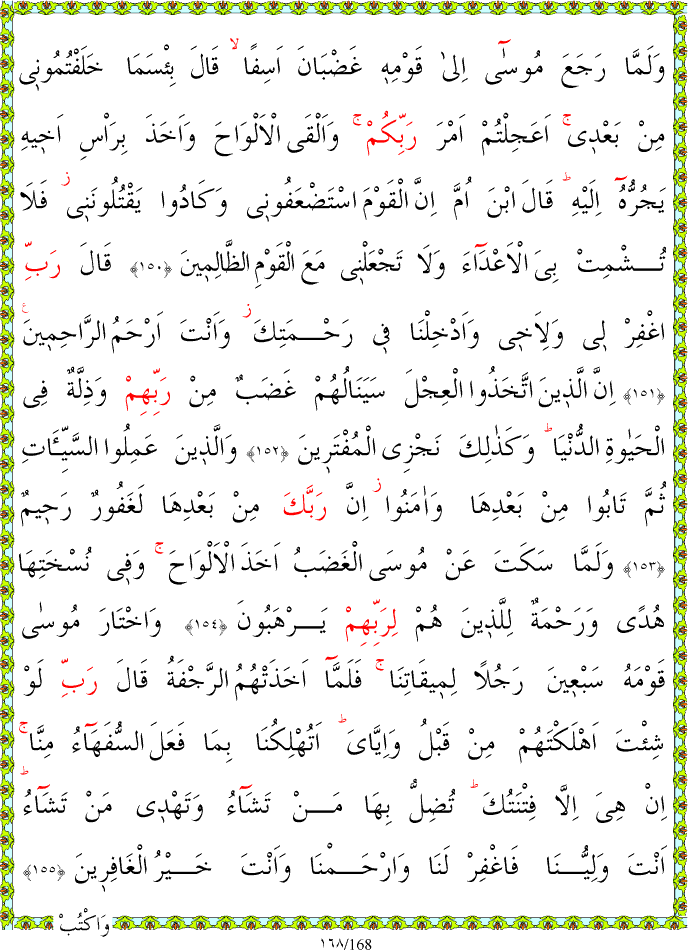 وَلَمَّا رَجَعَ مُوسٰٓى اِلٰى قَوْمِه۪ غَضْبَانَ اَسِفًاۙ قَالَ بِئْسَمَا خَلَفْتُمُون۪ي
مِنْ بَعْد۪يۚ اَعَجِلْتُمْ اَمْرَ رَبِّكُمْۚ وَاَلْقَى الْاَلْوَاحَ وَاَخَذَ بِرَاْسِ اَخ۪يهِ
يَجُرُّهُٓ اِلَيْهِۜ قَالَ ابْنَ اُمَّ اِنَّ الْقَوْمَ اسْتَضْعَفُون۪ي وَكَادُوا يَقْتُلُونَن۪يۘ فَلَا
تُـــشْمِتْ بِيَ الْاَعْدَٓاءَ وَلَا تَجْعَلْن۪ي مَعَ الْقَوْمِ الظَّالِم۪ينَ ﴿١٥٠﴾ قَالَ رَبِّ
اغْفِرْ ل۪ي وَلِاَخ۪ي وَاَدْخِلْنَا ف۪ي رَحْـــمَتِكَۘ وَاَنْتَ اَرْحَمُ الرَّاحِم۪ينَ۟
﴿١٥١﴾ اِنَّ الَّذ۪ينَ اتَّخَذُوا الْعِجْلَ سَيَنَالُهُمْ غَضَبٌ مِنْ رَبِّهِمْ وَذِلَّةٌ فِي
الْحَيٰوةِ الدُّنْيَاۜ وَكَذٰلِكَ نَجْزِي الْمُفْتَر۪ينَ ﴿١٥٢﴾ وَالَّذ۪ينَ عَمِلُوا السَّيِّـَٔاتِ
ثُمَّ تَابُوا مِنْ بَعْدِهَا وَاٰمَنُواۘ اِنَّ رَبَّكَ مِنْ بَعْدِهَا لَغَفُورٌ رَح۪يمٌ
﴿١٥٣﴾ وَلَمَّا سَكَتَ عَنْ مُوسَى الْغَضَبُ اَخَذَ الْاَلْوَاحَۚ وَف۪ي نُسْخَتِهَا
هُدًى وَرَحْمَةٌ لِلَّذ۪ينَ هُمْ لِرَبِّهِمْ يَـــرْهَبُونَ ﴿١٥٤﴾ وَاخْتَارَ مُوسٰى
قَوْمَهُ سَبْع۪ينَ رَجُلًا لِم۪يقَاتِنَاۚ فَلَمَّٓا اَخَذَتْهُمُ الرَّجْفَةُ قَالَ رَبِّ لَوْ
شِئْتَ اَهْلَكْتَهُمْ مِنْ قَبْلُ وَاِيَّايَۜ اَتُهْلِكُنَا بِمَا فَعَلَ السُّفَهَٓاءُ مِنَّاۚ
اِنْ هِيَ اِلَّا فِتْنَتُكَۜ تُضِلُّ بِهَا مَـــنْ تَشَٓاءُ وَتَهْد۪ي مَنْ تَشَٓاءُۜ
اَنْتَ وَلِيُّـــنَا فَاغْفِرْ لَنَا وَارْحَـــمْنَا وَاَنْتَ خَـــيْرُ الْغَافِر۪ينَ ﴿١٥٥﴾
وَاكْتُبْ
١٦٨/168